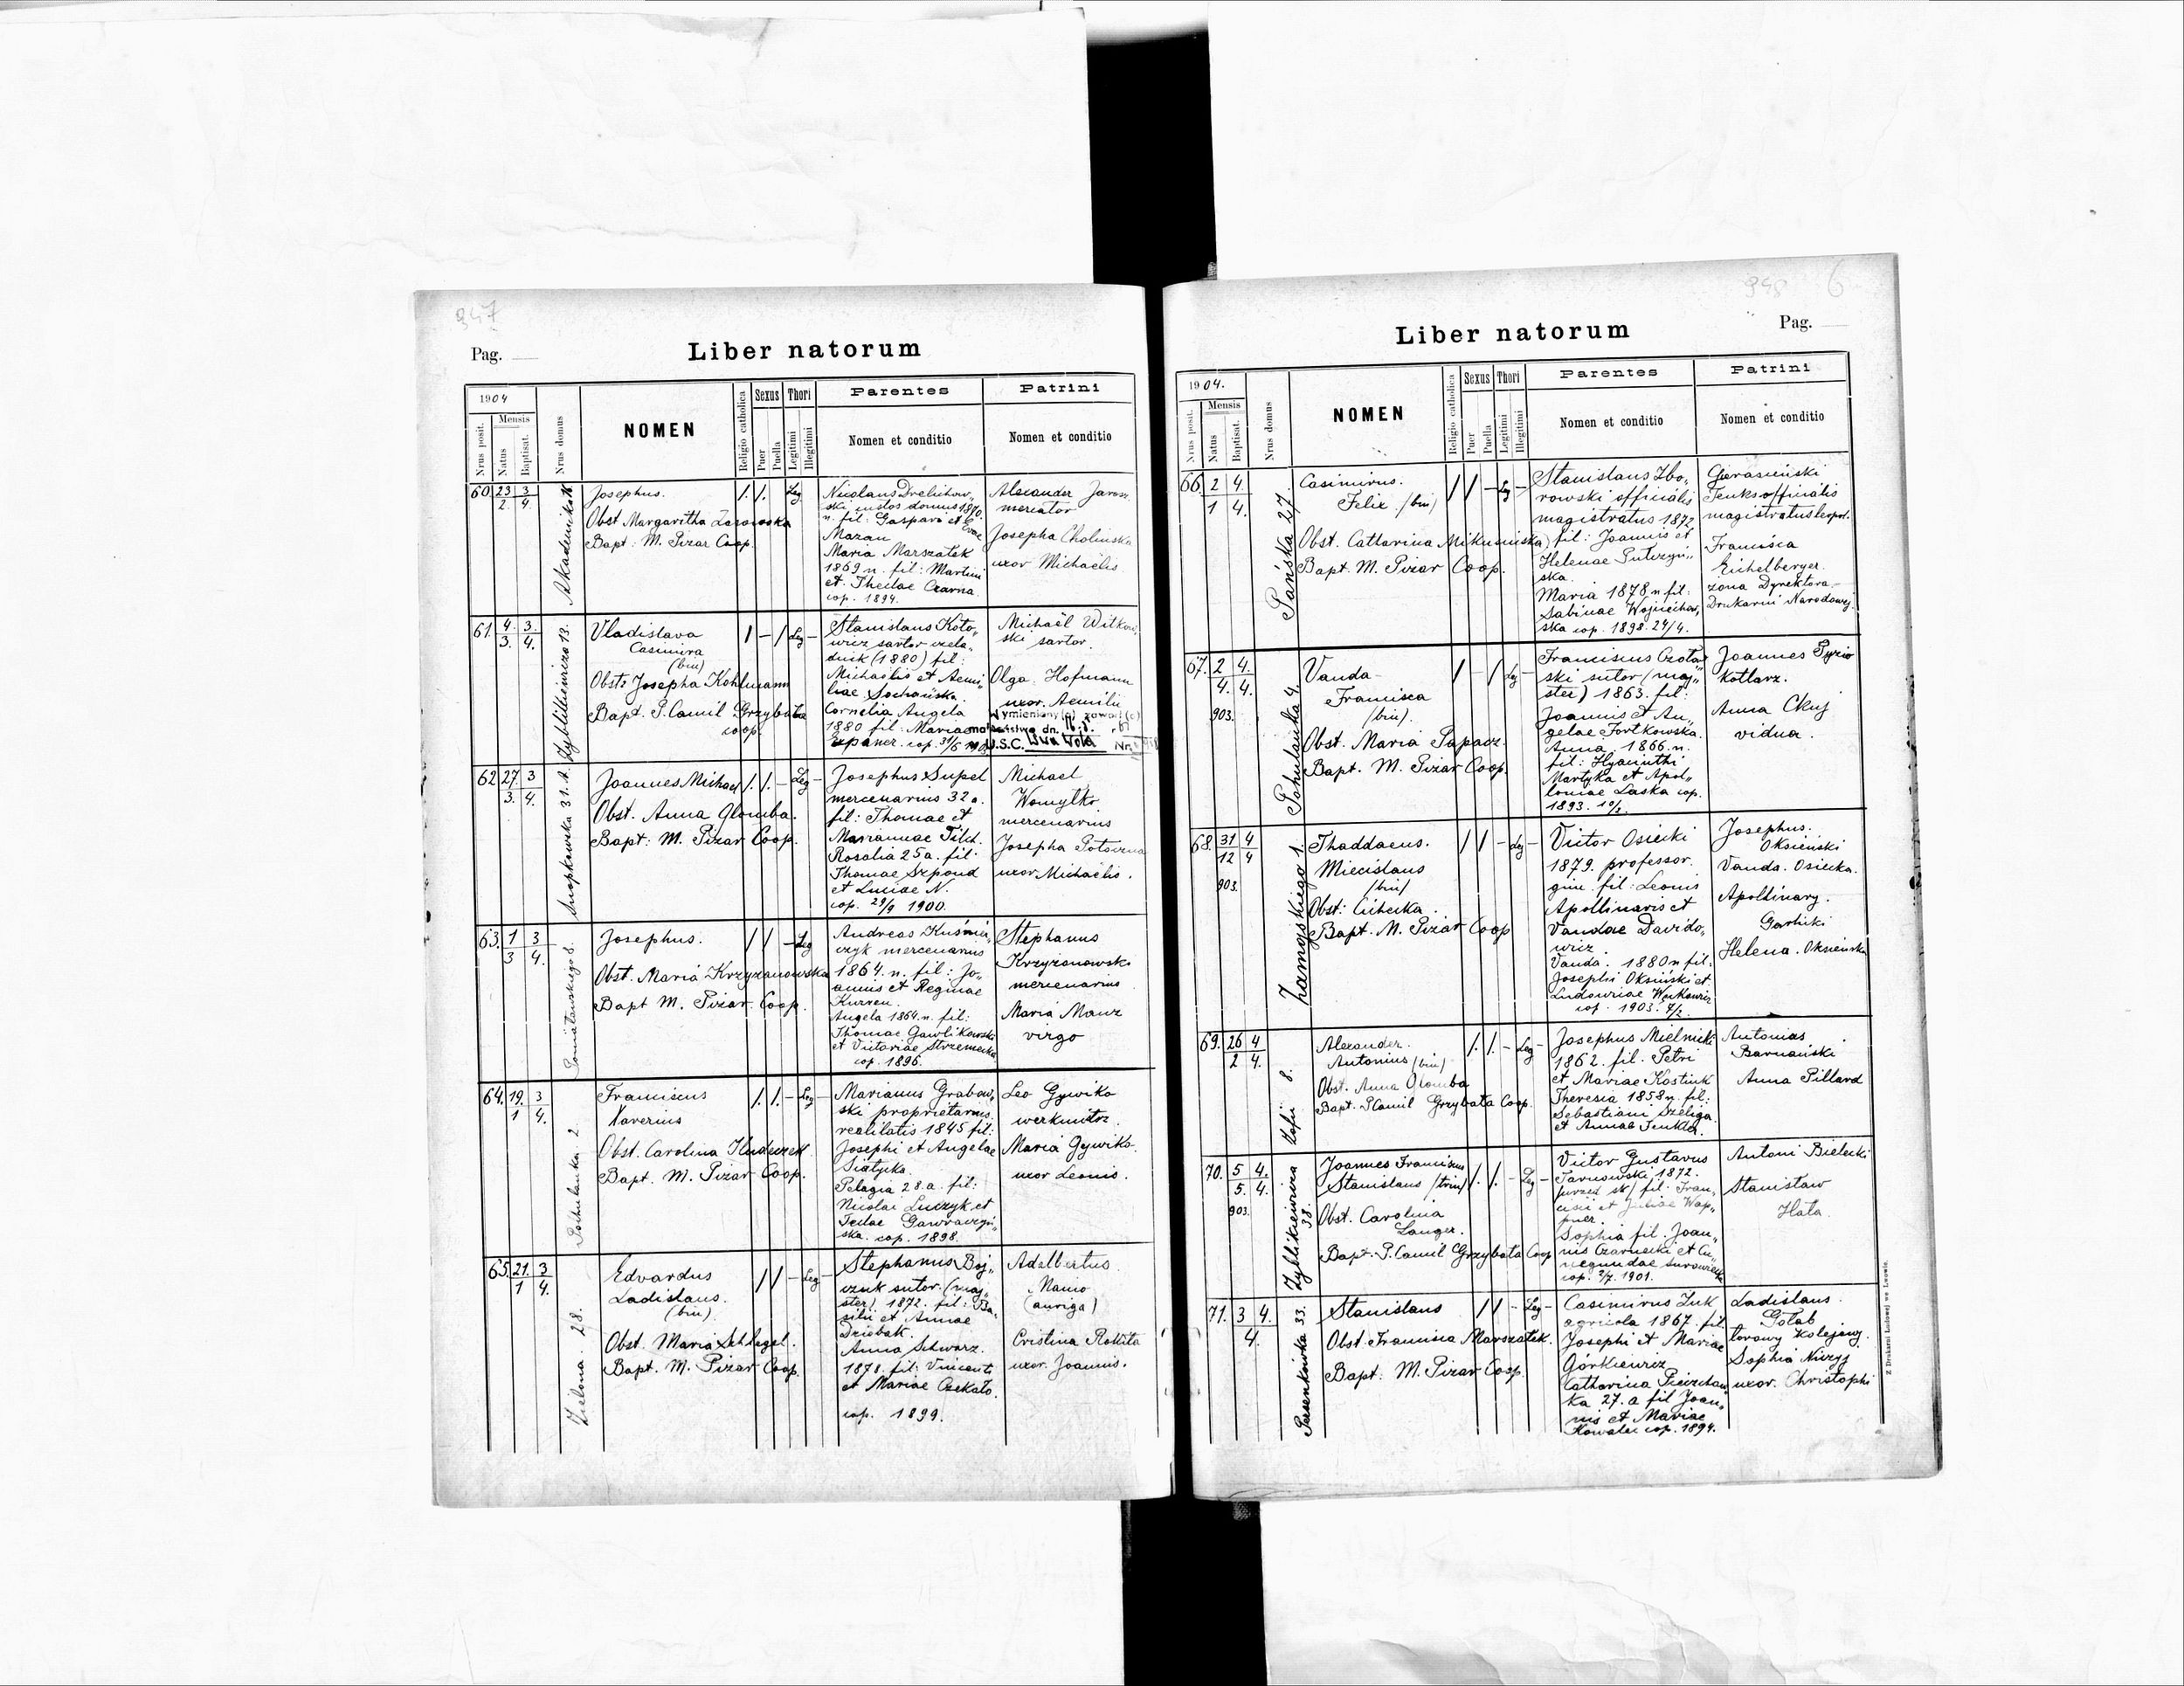 947
Pag.
Liber natorum
1904
Mensis
Nrus posit.
Natus
Baptisat.
Nrus domus
NOMEN
Religio catholica
Sexus
Puer
Puella
Thori
Legitimi
Illegitimi
Parentes
Nomen et conditio
Patrini
Nomen et conditio
60. 23/2. 3/4.
Josephus.
Obst Margaritha
Bapt: M. Pizar Coop.
Leg
Nicolaus Drelichow„
ski custos domus 1870
n. fil: Gaspari et Evae
Mazan
Maria Marszałek
1869 n. fil: Martini
et Theclae Czarna.
cop. 1894.
Alexander Jaross
mercator
Josepha Cholinska
uxor Michaelis
61. 4./3. 3./4.
Zyblikiewicza 13.
Vladislava
Casimira
(bin)
Obst: Josepha Kohlmann
Bapt. P. Camil Grzybała
coop.
Leg
Stanislaus Koto„
wicz sartor czela„
dnik (1880) fil:
Michaelis et Aemi„
liae Sochańska.
Cornelia Angela
1880 fil: Mariae
cop. 31/5
Michaël Witkow„
ski sartor.
Olga Hofmann
uxor. Aemilii
Wymieniony(a) zawarł(a)
małżeństwo dn.
U.S.C.
62 27./3. 3/4.
Snopkowska 31.
Joannes Michael
Obst. Anna Głomba.
Bapt: M. Pizar Coop.
Leg
Josephus Supel
mercenarius 32 a.
fil: Thomae et
Mariannae Pilch.
Rosalia 25 a. fil:
Thomae Szpond
et Luciae N.
cop. 29/9 1900.
Michael
Womylko
mercenarius
Josepha
uxor Michaelis.
63. 1/3 3/4.
Poniatowskiego 8.
Josephus.
Obst. Maria Krzyzanowska
Bapt M. Pizar Coop.
Leg
Andreas Kuśnier„
czyk mercenarius
1864. n. fil: Jo„
annis et Reginae
Angela 1864. n. fil:
Thomae Gawlikowski
et Victoriae Strzemecka
cop. 1896.
Stephanus
Krzyzanowski
mercenarius
Maria Mauz
virgo
64. 19./1 3/4.
Pohulanka 2.
Franciscus
Xaverius
Obst. Carolina Hudeczek
Bapt. M. Pizar Coop.
Leg
Marianus Grabow„
ski proprietarius
realitatis 1845 fil:
Josephi et Angelae
Siatycka.
Pelagia 28. a. fil:
Nicolai Luczyk et
Teclae Gawraczyń„
ska. cop. 1898.
Leo Gywiko
werkmistrz.
Maria Gywiko.
uxor Leonis.
65. 21./1 3/4.
Zielona. 28.
Edvardus
Ladislaus.
(bin)
Obst. Maria Schlegel.
Bapt. M. Pizar Coop.
Leg
Stephanus Boj„
czuk sutor. (maj„
ster). 1872. fil: Ba„
silii et Annae
Dziobak.
Anna Schwarz.
1878. fil: Vincenti
et Mariae Czekało.
cop. 1899.
Adalbertus
Namo
(auriga)
Cristina Rokita
uxor. Joannis.
948 6
Pag.
Liber natorum
1904.
Mensis
Nrus posit.
Natus
Baptisat.
Nrus domus
NOMEN
Religio catholica
Sexus
Puer
Puella
Thori
Legitimi
Illegitimi
Parentes
Nomen et conditio
Patrini
Nomen et conditio
66. 2/1 4./4.
27.
Casimirus.
Felix (bin)
Obst. Catharina
Bapt. M. Pizar Coop.
Leg
Stanislaus Zbo„
rowski officialis
magistratus 1872.
fil: Joannis et
Helenae
ska.
Maria 1878 n fil:
Sabinae Wojciechow„
ska cop. 1898. 24/4.
officialis
magistratus leopol.
Francisca
Eichelberger.
żona Dyrektora
Drukarni Narodowej.
67. 2/4. 4./4.
903.
Pohulanka 4.
Vanda
Francisca
(bin).
Obst. Maria Papacz.
Bapt. M. Pizar Coop.
Leg
Franciscus
ski sutor (maj„
ster) 1863. fil:
Joannis et An„
gelae Fortkowska.
Anna. 1866. n.
fil: Hyacinthi
Martyka et Apol„
loniae Laska cop.
1893.
Joannes Pyrio
kotlarz.
Anna Ckuj
vidua.
68. 31/12 4/4
903.
Zamojskiego 1.
Thaddaeus.
Miecislaus
(bin)
Obst: Cichocka.
Bapt. M. Pizar Coop
Leg
Victor Osiecki
1879. professor.
gim. fil: Leonis
Apollinaris et
Vandae Davido„
wicz
Vanda. 1880 n fil:
Josephi Oksiński et
Ludovicae
cop. 1903. 7/2.
Josephus.
Oksieński
Vanda. Osiecka.
Apollinary.
Garlicki
Helena. Oksieńska
69. 26/2 4/4.
Zofii 8.
Alexander.
Antonius (bin)
Obst. Anna Głomba
Bapt. P Camil Grzybała Coop.
Leg
Josephus Mielnicki
1862. fil. Petri
et Mariae Kostiuk
Theresia 1858 n. fil:
Sebastiani Szeliga
et Annae
Antonius
Barnański
Anna Pillard
70. 5/5. 4./4.
903.
Zyblikiewicza
38.
Joannes Franciscus
Stanislaus (trin)
Obst. Carolina
Langer.
Bapt. P. Camil Grzybała Coop
Leg
Victor Gustavus
Tarnowski, 1872.
fil. Fran„
cisci et Juliae Wap„
pner.
Sophia fil. Joan„
nis Czarnecki et Cu„
negundae Surowiecka
cop. 2/7. 1901.
Antoni Bielecki
Stanisław
Hata.
71. 3/4. 4.
Persenkówka 33.
Stanislaus
Obst. Francisca Marszałek.
Bapt: M. Pizar Coop.
Leg
Casimirus Żuk
agricola 1867. fil.
Josephi et Mariae
Górkiewicz
Catharina
ka 27. a fil Joan„
nis et Mariae
Kowalec cop. 1894.
Ladislaus.
Gołab
torowy kolejowy.
Sophia Niczyj
uxor. Christophi
Z Drukarni Ludowej we Lwowie.